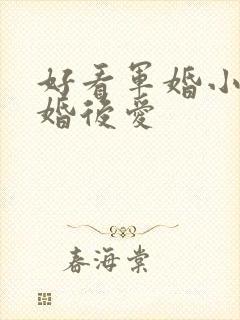 好看軍婚小
婚後愛
春海棠